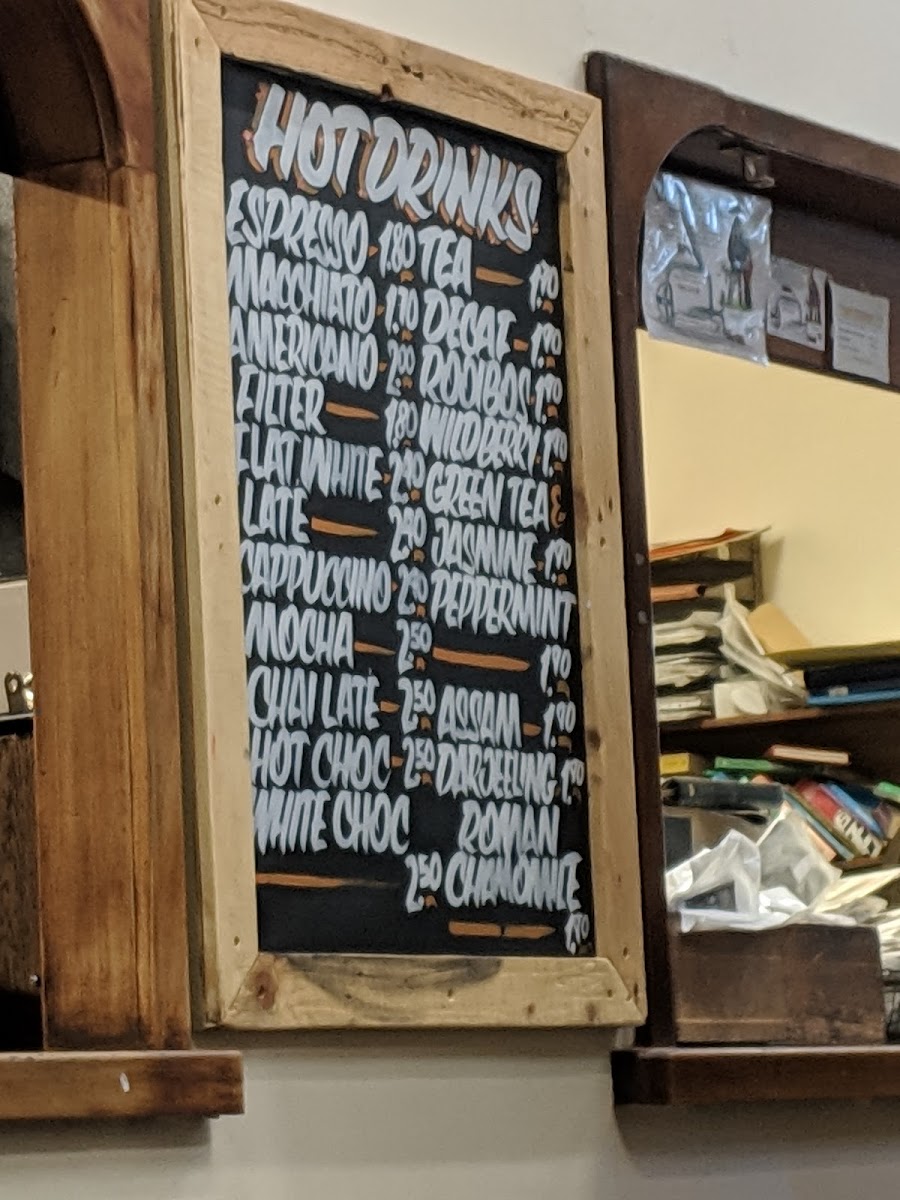 HOT DRINKS
ESPRESSO - 1.80
MACCHIATO - 1.70
AMERICANO - 2.00
FILTER - 1.80
FLAT WHITE - 2.40
LATE - 2.40
CAPPUCCINO - 2.40
MOCHA - 2.50
CHAI LATE - 2.50
HOT CHOC - 2.50
WHITE CHOC
- 2.50
TEA - 1.70
DECAF - 1.70
ROOIBOS - 1.70
WILD BERRY - 1.70
GREEN TEA &
JASMINE - 1.70
PEPPERMINT
- 1.70
ASSAM - 1.70
DARJEELING 1.70
ROMAN
CHAMOMILE
- 1.70